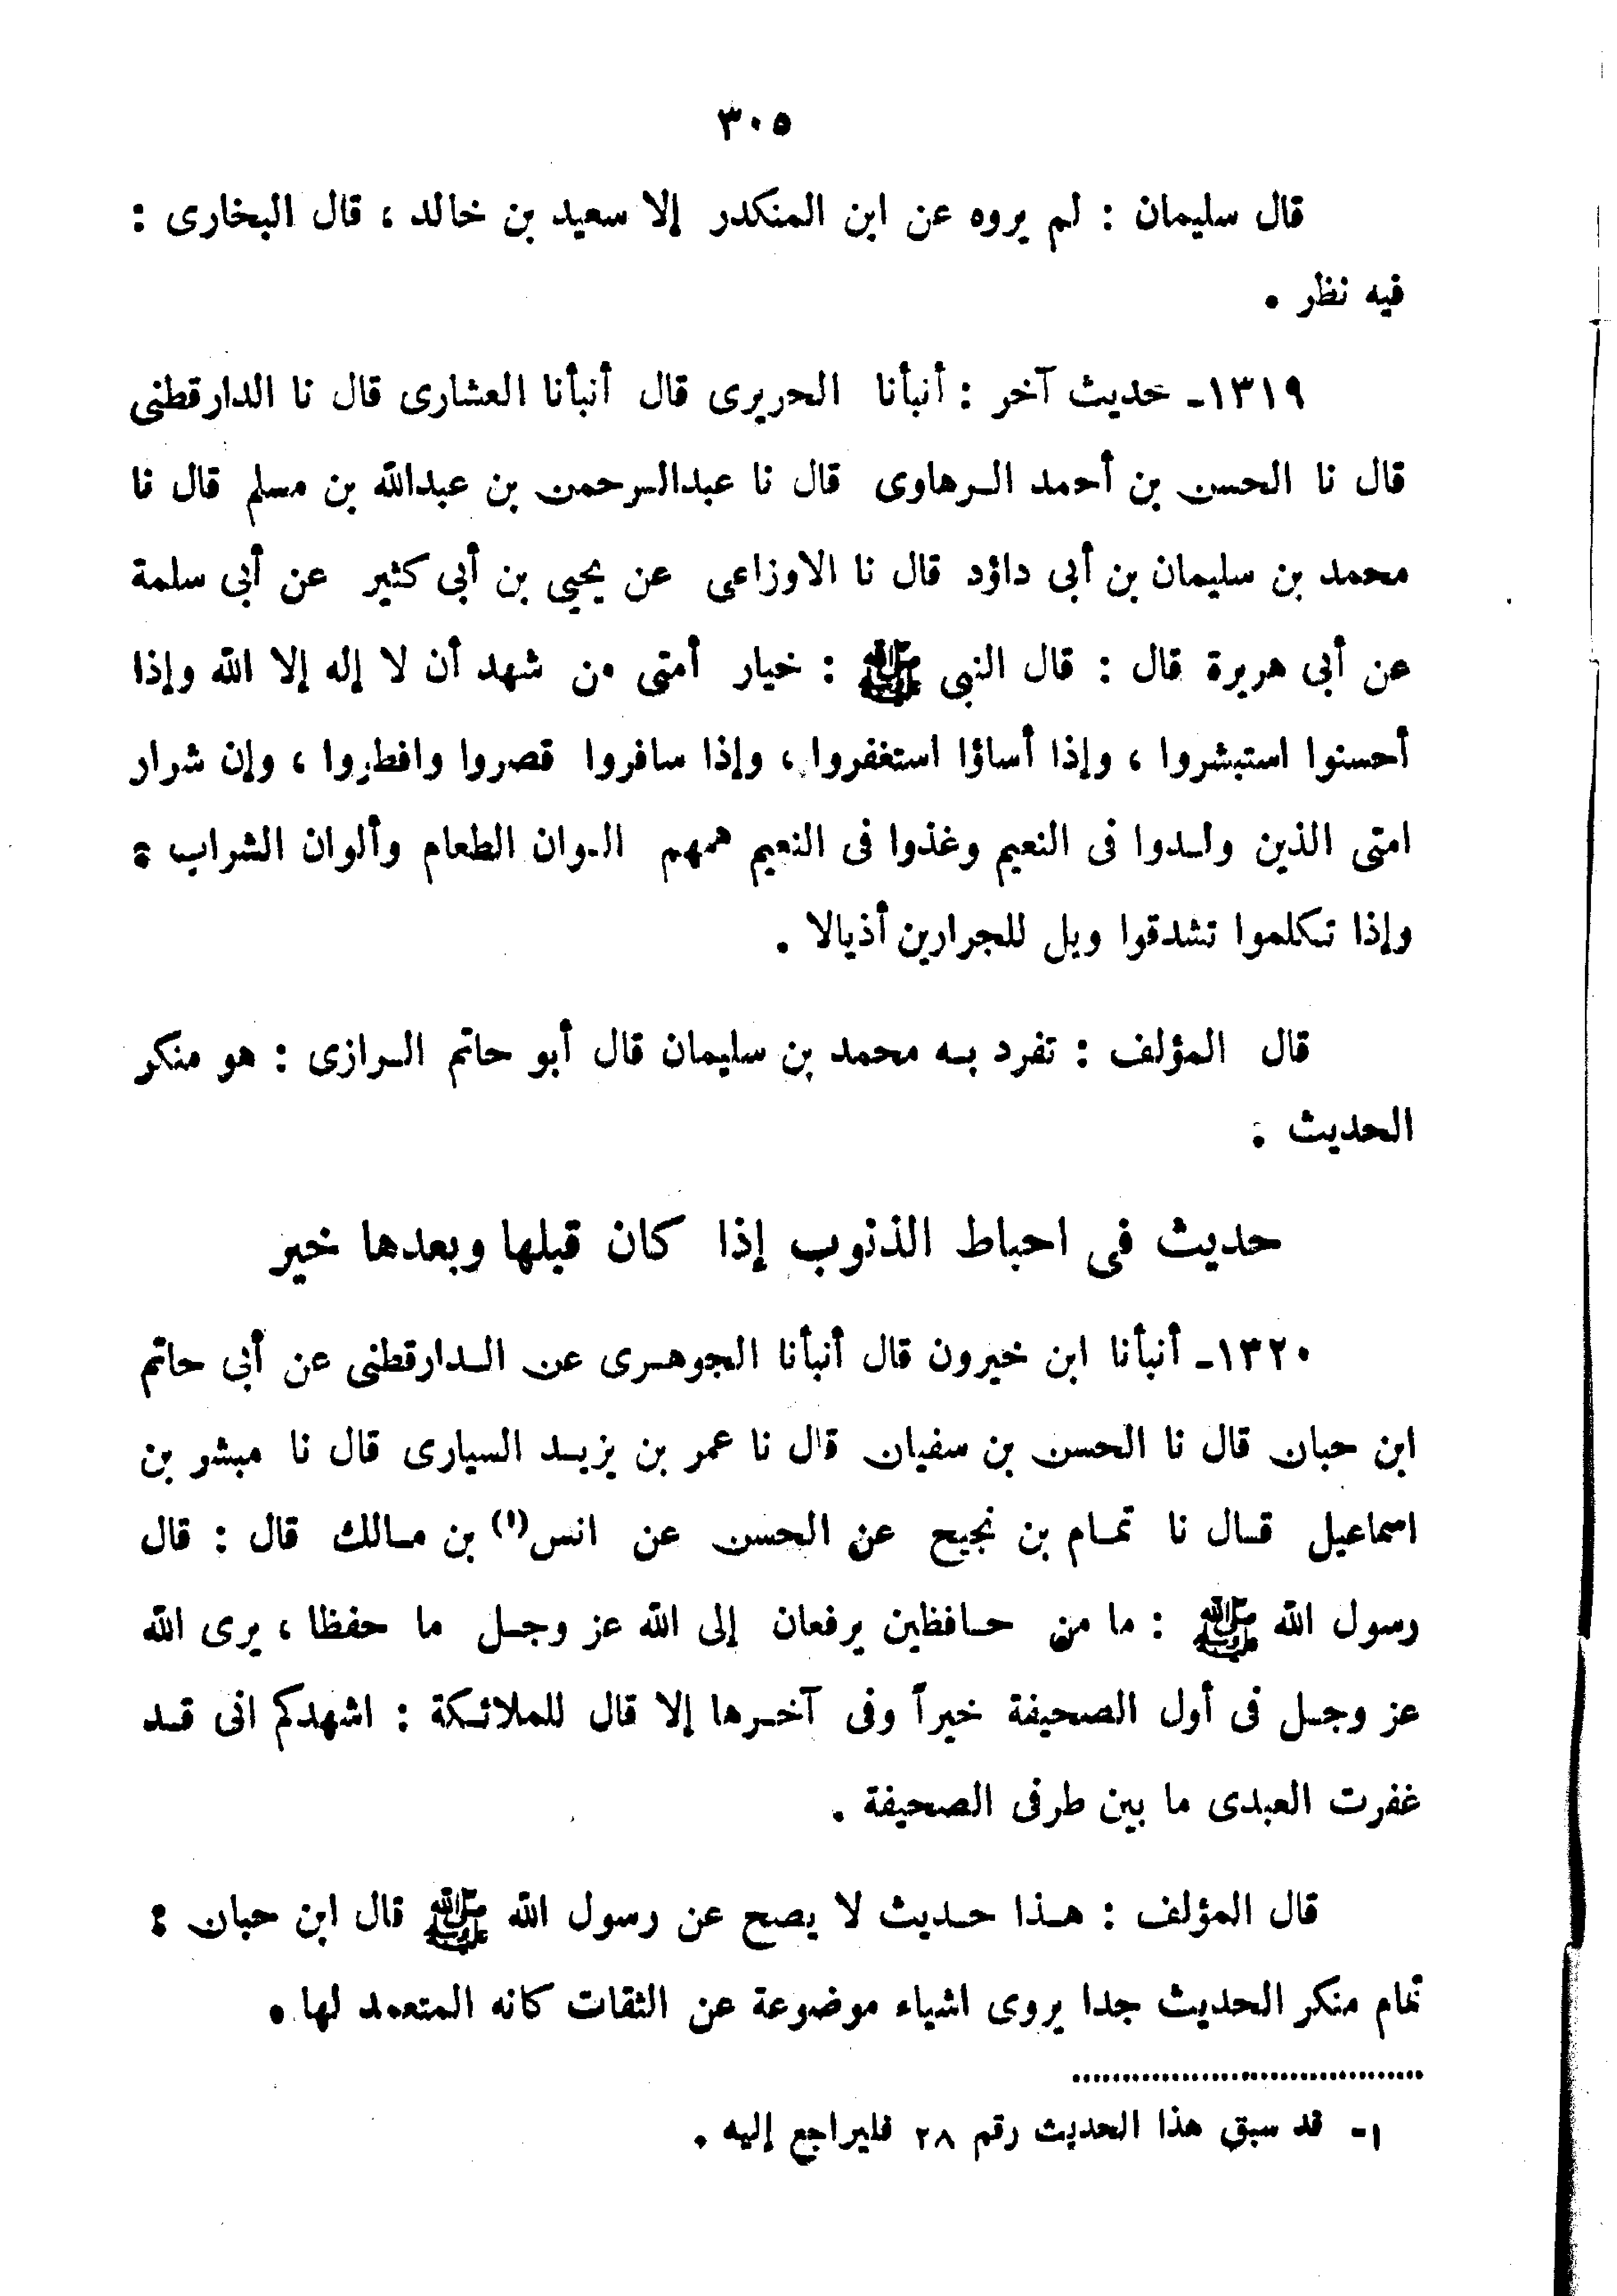 ٣٠٥
قال سليمان : لم يروه عن ابن المنكدر إلا سعيد بن خالد ، قال البخارى :
فيه نظر .
١٣١٩ـ حديث آخر : أنبأنا الحريرى قال أنبأنا العشارى قال نا الدارقطنى
قال نا الحسن بن أحمد الـرهاوى قال نا عبدالرحمن بن عبدالله بن مسلم قال نا
محمد بن سليمان بن أبى داؤد قال نا الاوزاعى عن يحيى بن أبى كثير عن أبى سلمة
عن أبى هريرة قال : قال النبى ﷺ : خيار أمتى من شهد أن لا إله إلا الله وإذا
أحسنوا استبشروا ، وإذا أساؤا استغفروا ، وإذا سافروا قصروا وافطروا ، وإن شرار
امتى الذين ولـدوا فى النعيم وغذوا فى النعيم همهم الوان الطعام وألوان الشراب :
وإذا تكلموا تشدقوا ويل للجرارين أذيالا .
قال المؤلف : تفرد بـه محمد بن سليمان قال أبو حاتم الـرازى : هو منكر
الحديث .
حديث فى احباط الذنوب إذا كان قبلها وبعدها خير
١٣٢٠ـ أنبأنا ابن خيرون قال أنبأنا الجوهـرى عن الـدارقطنى عن أبى حاتم
ابن حبان قال نا الحسن بن سفيان قال نا عمر بن يزيـد السيارى قال نا مبشر بن
اسماعيل قـال نا تمـام بن نجيح عن الحسن عن انس(١) بن مـالك قال : قال
رسول الله ﷺ : ما من حـافظين يرفعان إلى الله عز وجـل ما حفظا ، يرى الله
عز وجـل فى أول الصحيفة خيراً وفى آخـرها إلا قال للملائـكة : اشهدكم انى قـد
غفرت العبدى ما بين طرفى الصحيفة .
قال المؤلف : هـذا حـديث لا يصح عن رسول الله ﷺ قال ابن حبان :
تمام منكر الحديث جدا يروى اشياء موضوعة عن الثقات كانه المتعمد لها .
١ـ قد سبق هذا الحديث رقم ٢٨ فليراجع إليه .